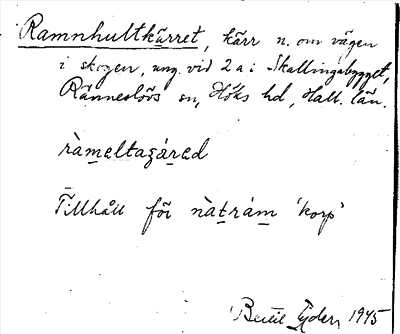 Ramnhultkärret, kärr n. om vägen
i skogen, ung. vid 2 a i Skallingabygget,
Ränneslövs sn, Höks hd, Hall. län.
ràmeltaʒáred
Tillhåll för nàtrám 'korp'
Bertil 1945